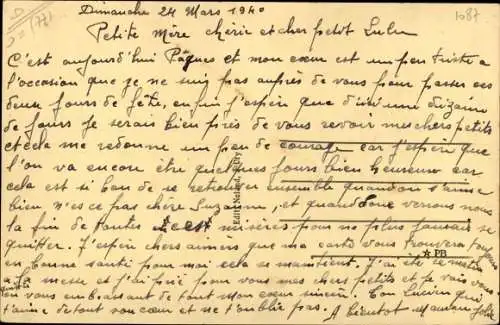 1087
Dimanche 24 Mars 1940
Petite Mère chérie et cher petit Lulu
C'est aujourd'hui Pâques et mon cœur est un peu triste a
l'occasion que je ne suis pas auprès de vous pour passer ces
deux jours de fête, enfin j'espère que d'ici une dizaine
de jours je serais bien près de vous revoir mes chers petits
et cela me redonne un peu de courage car j'espère que
l'on va encore être quelques jours bien heureux car
cela est si bon de se retrouver ensemble quand on s'aime
bien n'est ce pas chère Suzanne, et quand donc verrons nous
la fin de toutes ces misères pour ne plus jamais se
quitter. J'espère chers aimers que ma carte vous trouvera toujours
en bonne santé pour moi cela se maintient. J'ai été ce matin
a la messe et j'ai prié pour vous mes chers petits et je vais vous
quitter en vous embrassant de tout mon cœur Ton Lucien qui
t'aime de tout son cœur et ne t'oublie pas. A bientôt Maman
PB